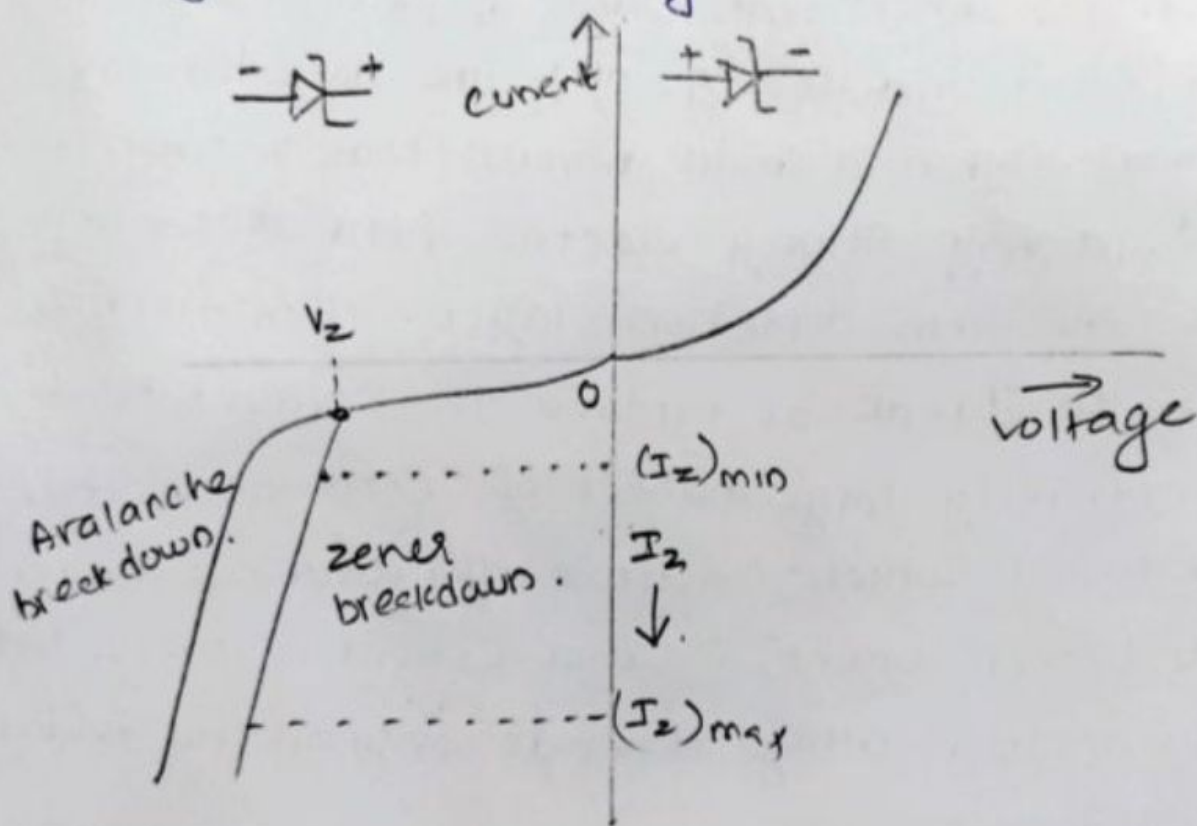 - +
current
+ -
Vz
0
voltage
(Iz)min
Avalanche
breakdown.
zener
breakdown.
Iz
(Iz)max